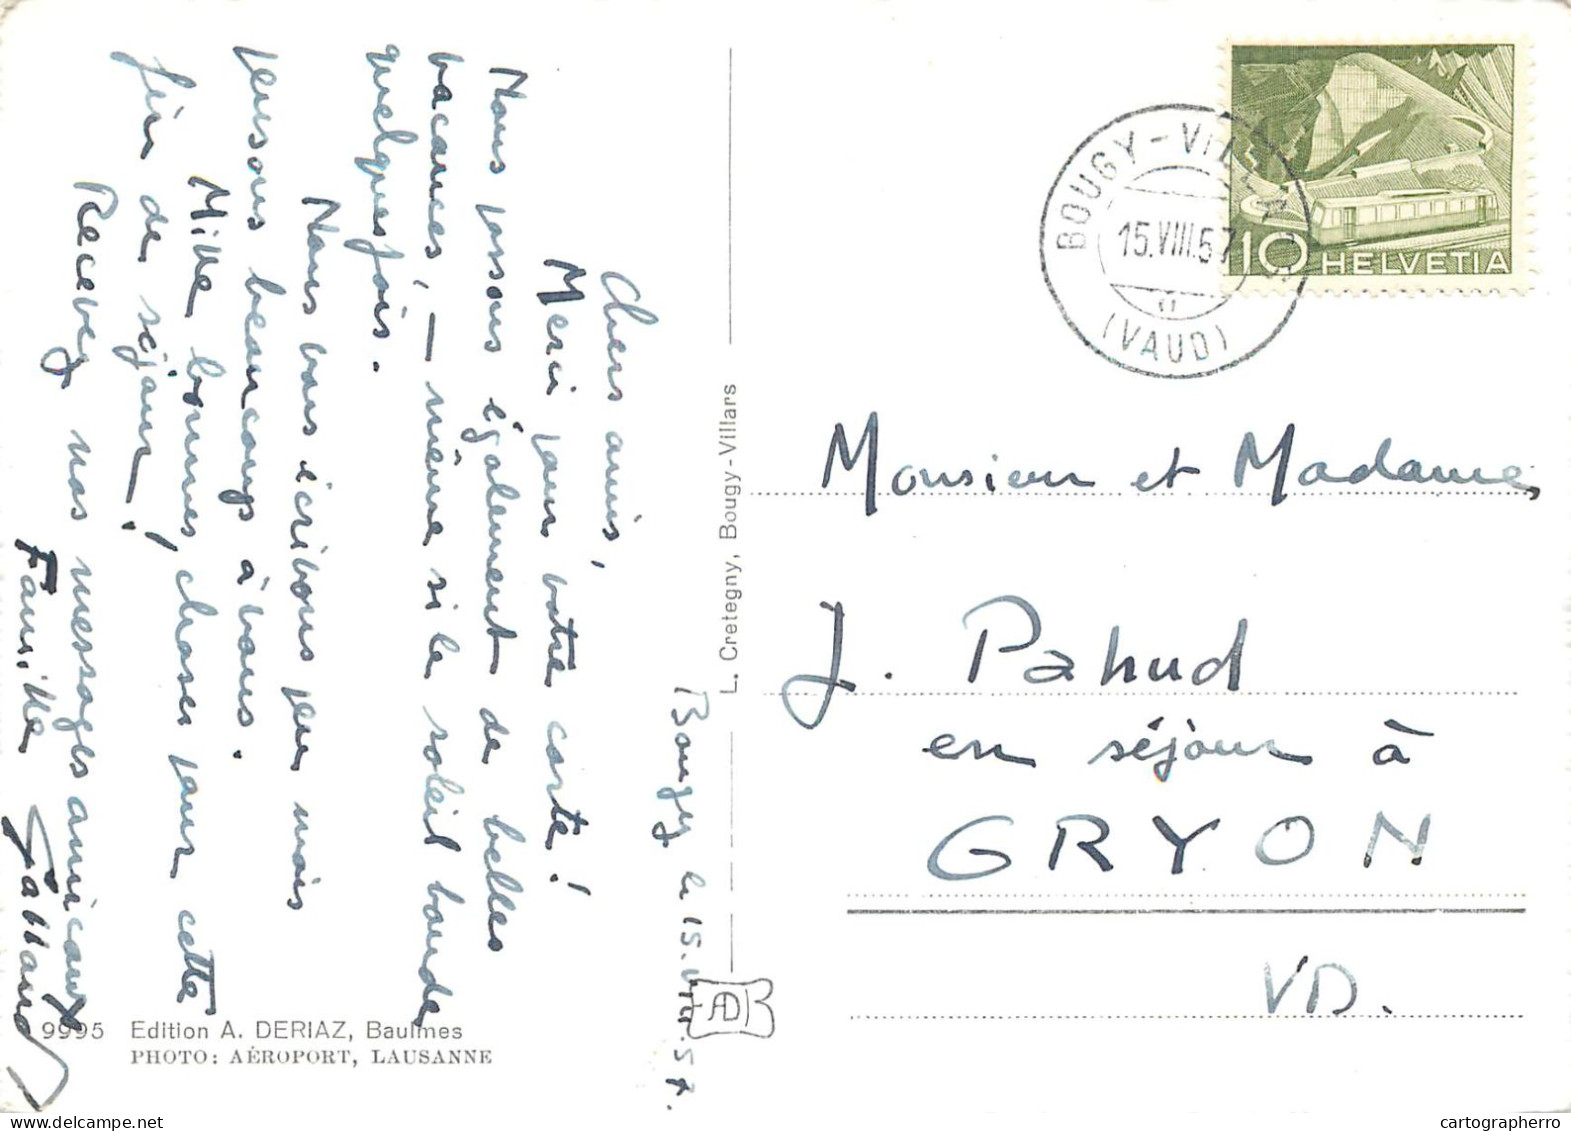 Bougy le 15.VIII.57.
Chers amis,
Merci pour votre carte!
Nous passons également de belles
vacances, — même si le soleil boude
quelquefois.
Nous vous écrivons peu mais
pensons beaucoup à vous.
Mille bonnes choses pour cette
fin de séjour!
Recevez nos messages amicaux
Famille
9995 Edition A. DERIAZ, Baulmes
PHOTO: AÉROPORT, LAUSANNE
L. Cretegny, Bougy-Villars
AD
BOUGY-VILLARS
15.VIII.57
(VAUD)
10 HELVETIA
Monsieur et Madame,
J. Pahud
en séjour à
GRYON
VD.
cartographerro